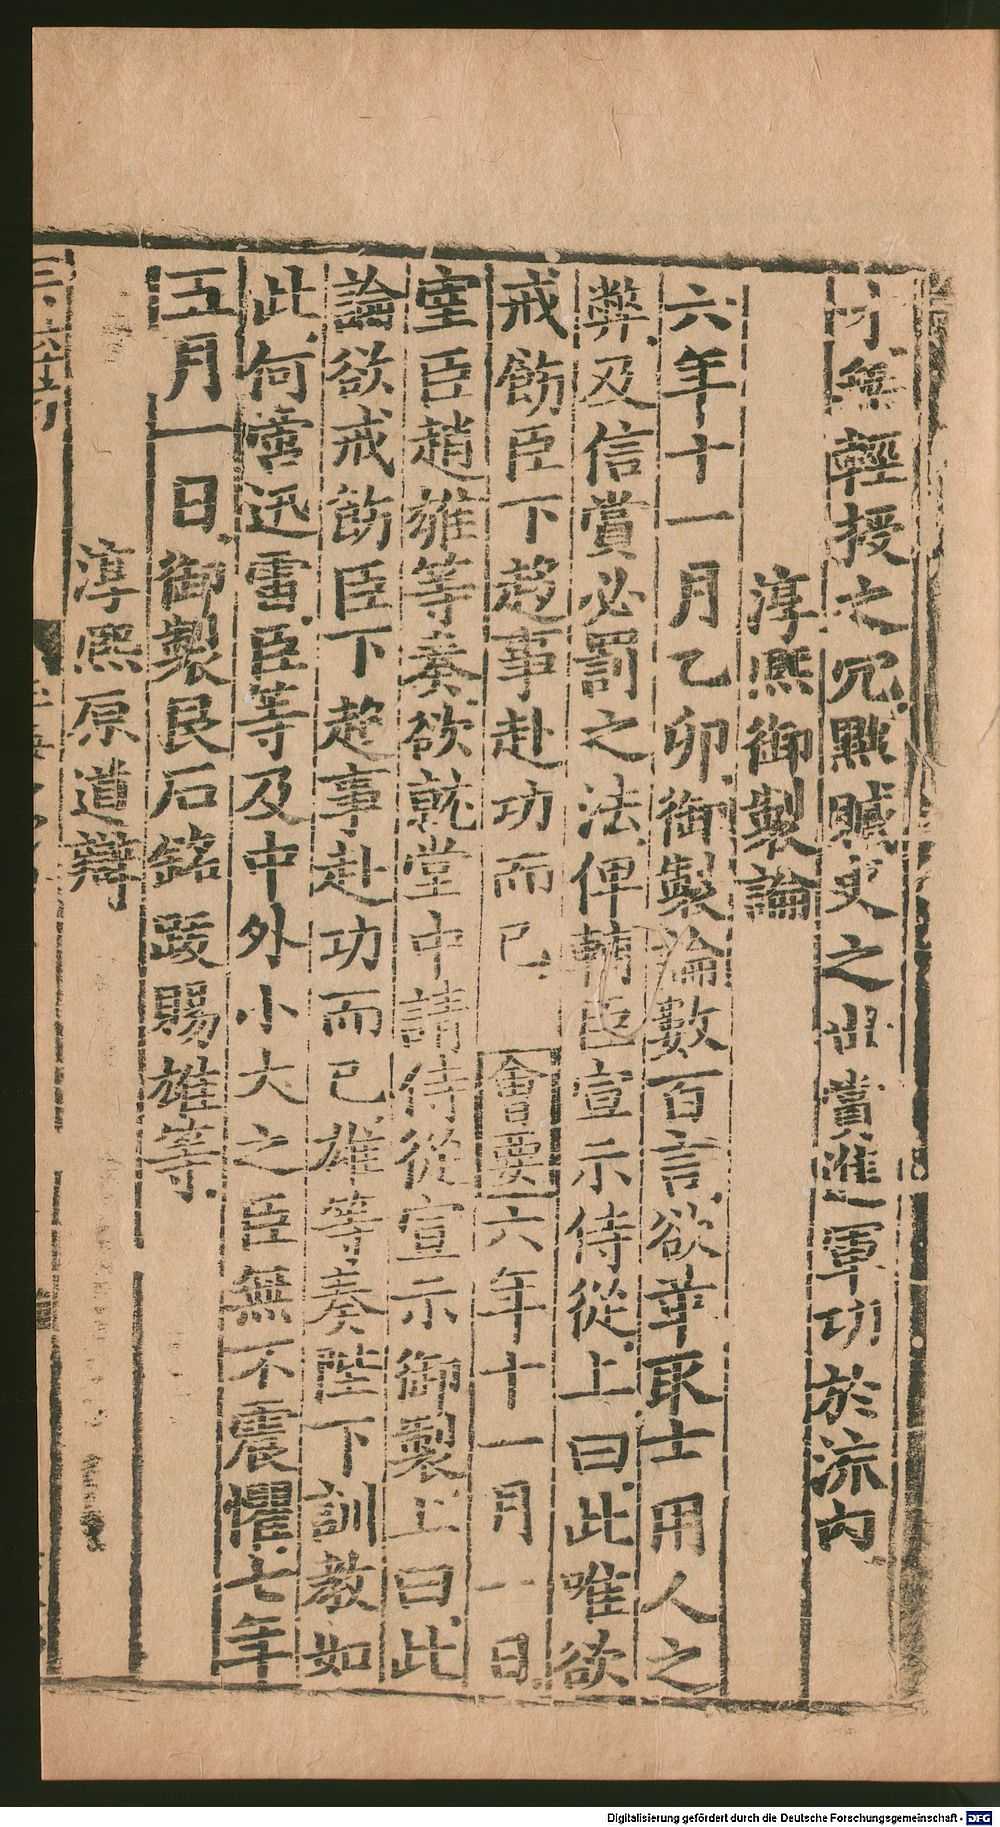 才無輕授之冗黜贓吏之出嘗進軍功於流内
淳熙御製論
六年十一月乙卯御製論數百言欲革取士用人之
弊及信賞必罰之法俾輔臣宣示侍從上曰此唯欲
戒飭臣下趍事赴功而已會要六年十一月一日
室臣趙雄等奏欲就堂中請侍從宣示御製上曰此
論欲戒飭臣下趍事赴功而已雄等奏陛下訓教如
此何啻迅雷臣等及中外小大之臣無不震懼七年
五月一日御製艮石銘跋賜雄等
淳熙原道辯
Digitalisierung gefördert durch die Deutsche Forschungsgemeinschaft - DFG